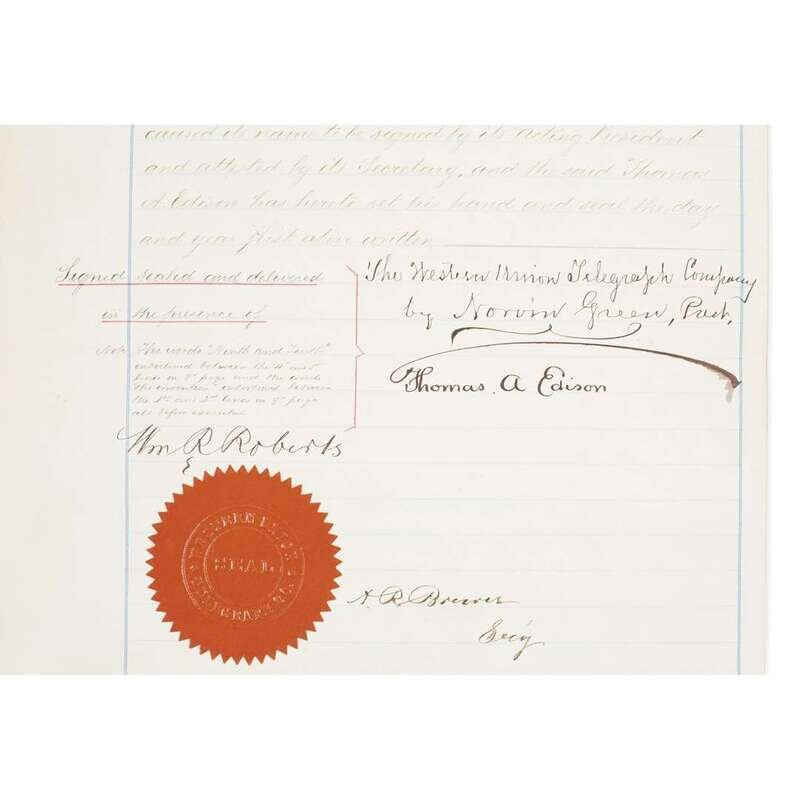 caused its name to be signed by its Acting President
and attested by its Secretary, and the said Thomas
A Edison has hereto set his hand and seal the day
and year first above written
Signed sealed and delivered
in the presence of
Note The words "Ninth and Tenth"
interlined between the 4th and 5th
lines in page and the words
the invention interlined between
the 1st and 2d lines in page
all before execution
Wm R Roberts
The Western Union Telegraph Company
by Norvin Green, Prest,
Thomas A Edison
WESTERN UNION
SEAL
TELEGRAPH CO.
A. R. Brewer
Sec'y